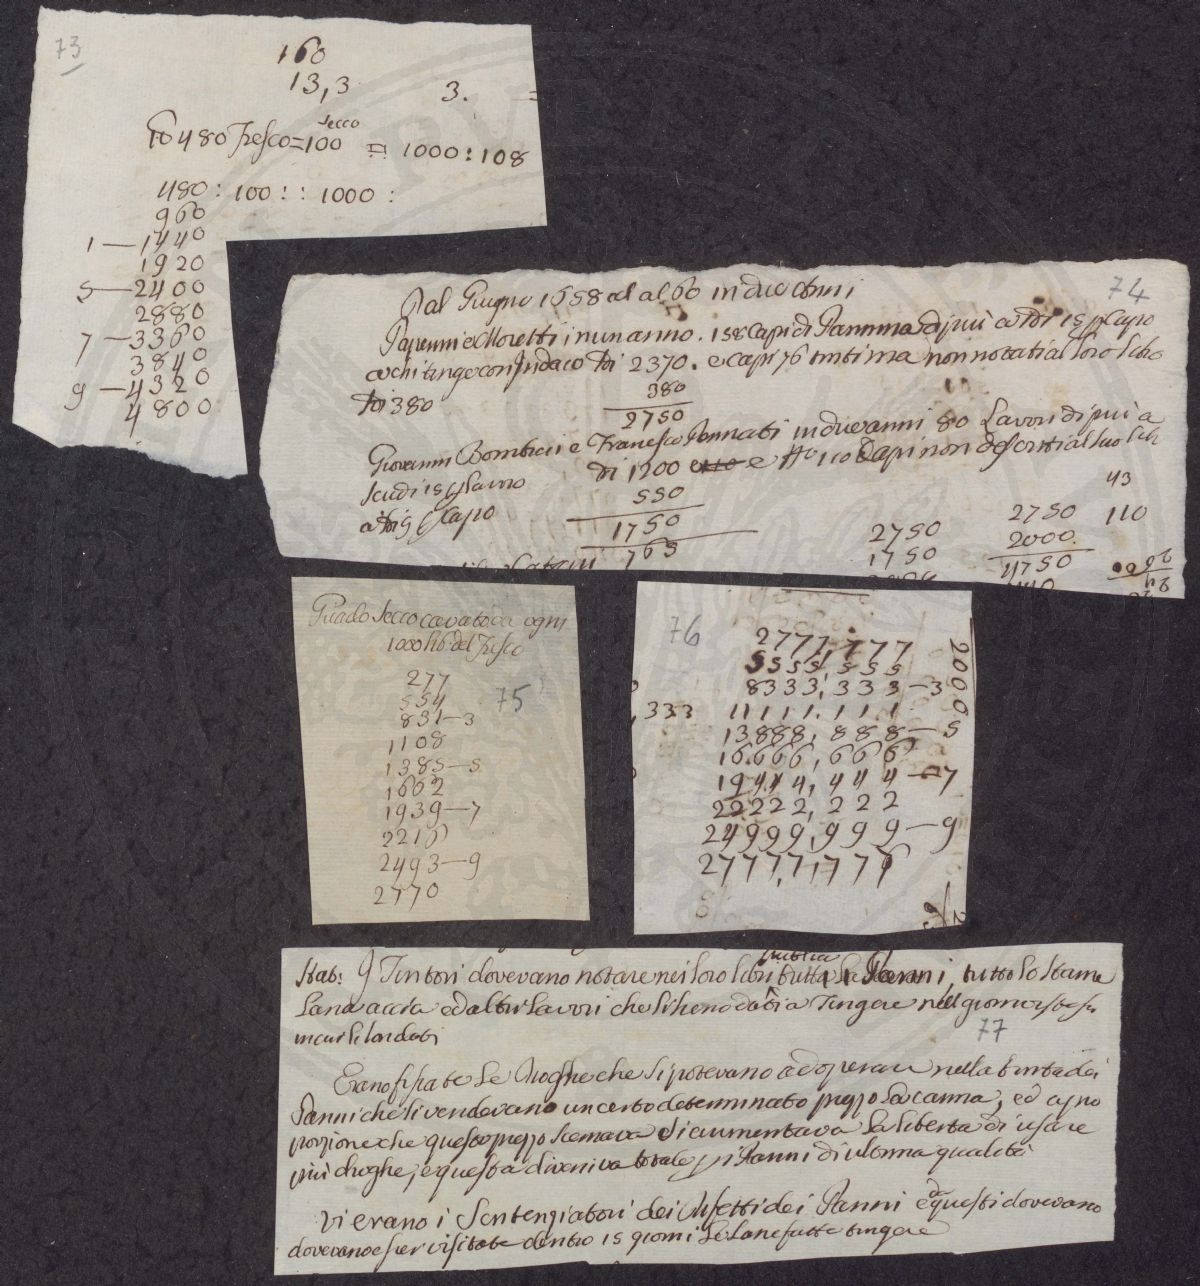 73
160
13,3 3. =
480 fresco = 100 secco = 1000 : 108
480 : 100 : : 1000 :
960
1 — 1440
1920
5 — 2400
2880
7 — 3360
3840
9 — 4320
4800
74
Dal Giugno 1658 al al 60 in due Anni
Moretti in un anno. 158 capi di Pannina di più a 15 p Capo
a chi tinge con Indaco 2370. e capi 76 non notati al loro libro
380
380
2750
Giovanni e Francesco in due anni 80 Lavori di più a
scudi 15 p Lavoro di 1200 e 110 Capi non descritti al suo lib
a 5 p Capo 550
1750
765
43
2750 2750 110
1750 2000
4750
Guado secco cavato da ogni
1000 lib. del Fresco
277
554
75
831 — 3
1108
1385 — 5
1662
1939 — 7
2216
2493 — 9
2770
76
2777,777
2000
5555,555
8333,333 — 3
,333 11111.111
13888,888 — 5
16.666,666
19444,444 — 7
22222,222
24999,999 — 9
27777,1776
Stab: I Tintori dovevano notare nei loro libri tutti i Panni, tutto lo stame
Lana accia ed altri Lavori che li sieno dati a Tingere nell giorno istesso
in cui li sian dati
77
Erano fissate Le Droghe che si potevano adoperare nella tinta dei
Panni che si vendevano un certo determinato prezzo La canna, ed a pro
porzione che questo prezzo scemava si aumentava La libertà di usare
più droghe, e questa diveniva totale p i Panni di ultima qualità
Vi erano i Sentenziatori dei Difetti dei Panni e da questi dovevano
dovevano esser visitate dentro 15 giorni Le Lane fatte tingere